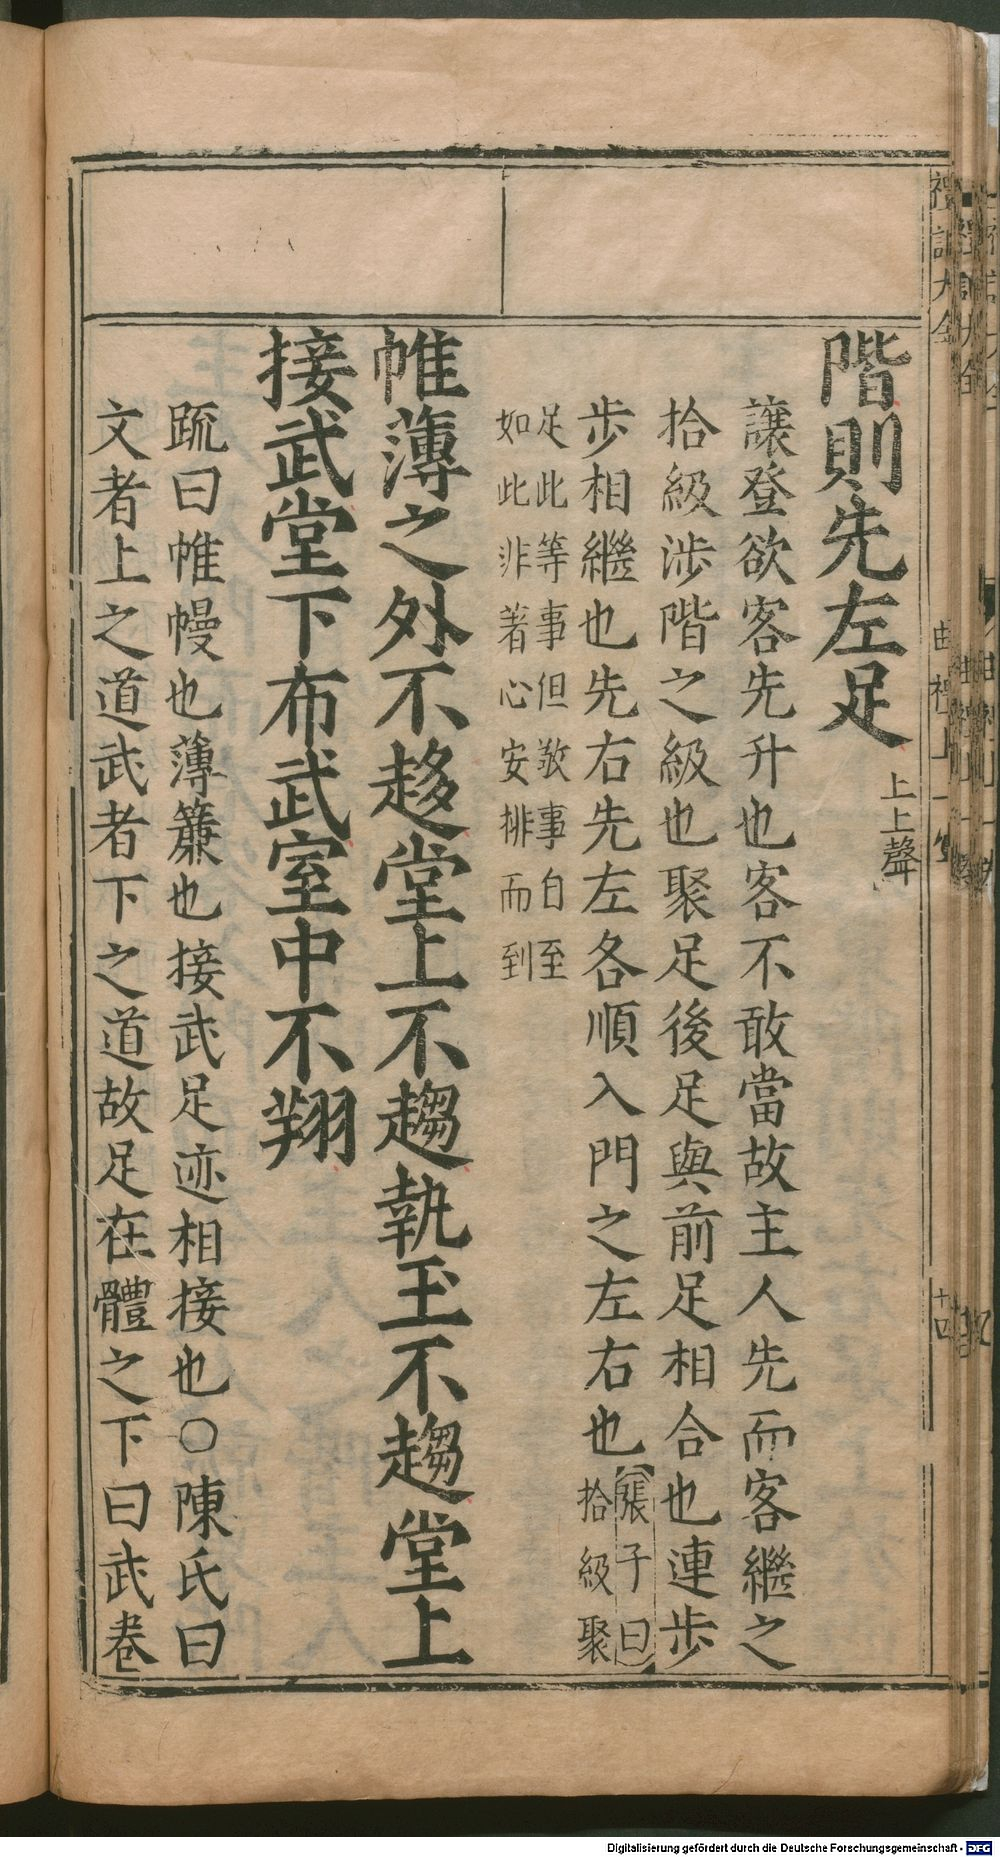 階則先左足上上聲
讓登欲客先升也客不敢當故主人先而客繼之
拾級涉階之級也聚足後足與前足相合也連步
步相繼也先右先左各順入門之左右也張子曰拾級聚
足此等事但敬事自至
如此非著心安排而到
帷薄之外不趍堂上不趨執玉不趨堂上
接武堂下布武室中不翔
䟽曰帷幔也薄簾也接武足迹相接也○陳氏曰
文者上之道武者下之道故足在體之下曰武卷
禮記大全
曲禮上一卷
十四
Digitalisierung gefördert durch die Deutsche Forschungsgemeinschaft - DFG